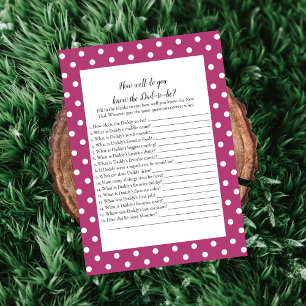 How well do you
know the Dad-to-be?
Fill in the blanks to test how well you know the New
Dad. Whoever gets the most questions correct wins!
1. How old is the Daddy-to-be?
2. What is Daddy's middle name?
3. What is Daddy's birth month?
4. What is Daddy's favorite food?
5. What is Daddy's biggest craving?
6. What is Daddy's favorite drink?
7. What is Daddy's favorite movie?
8. If Daddy were a superhero, who
9. What car does Daddy drive?
10. How many siblings does he have?
11. What is Daddy's favorite hobby?
12. What is Daddy's favorite color?
13. What is Daddy's favorite sport?
14. What was Daddy's first job?
15. Where was Daddy's last vacation?
16. How did he meet Mommy?